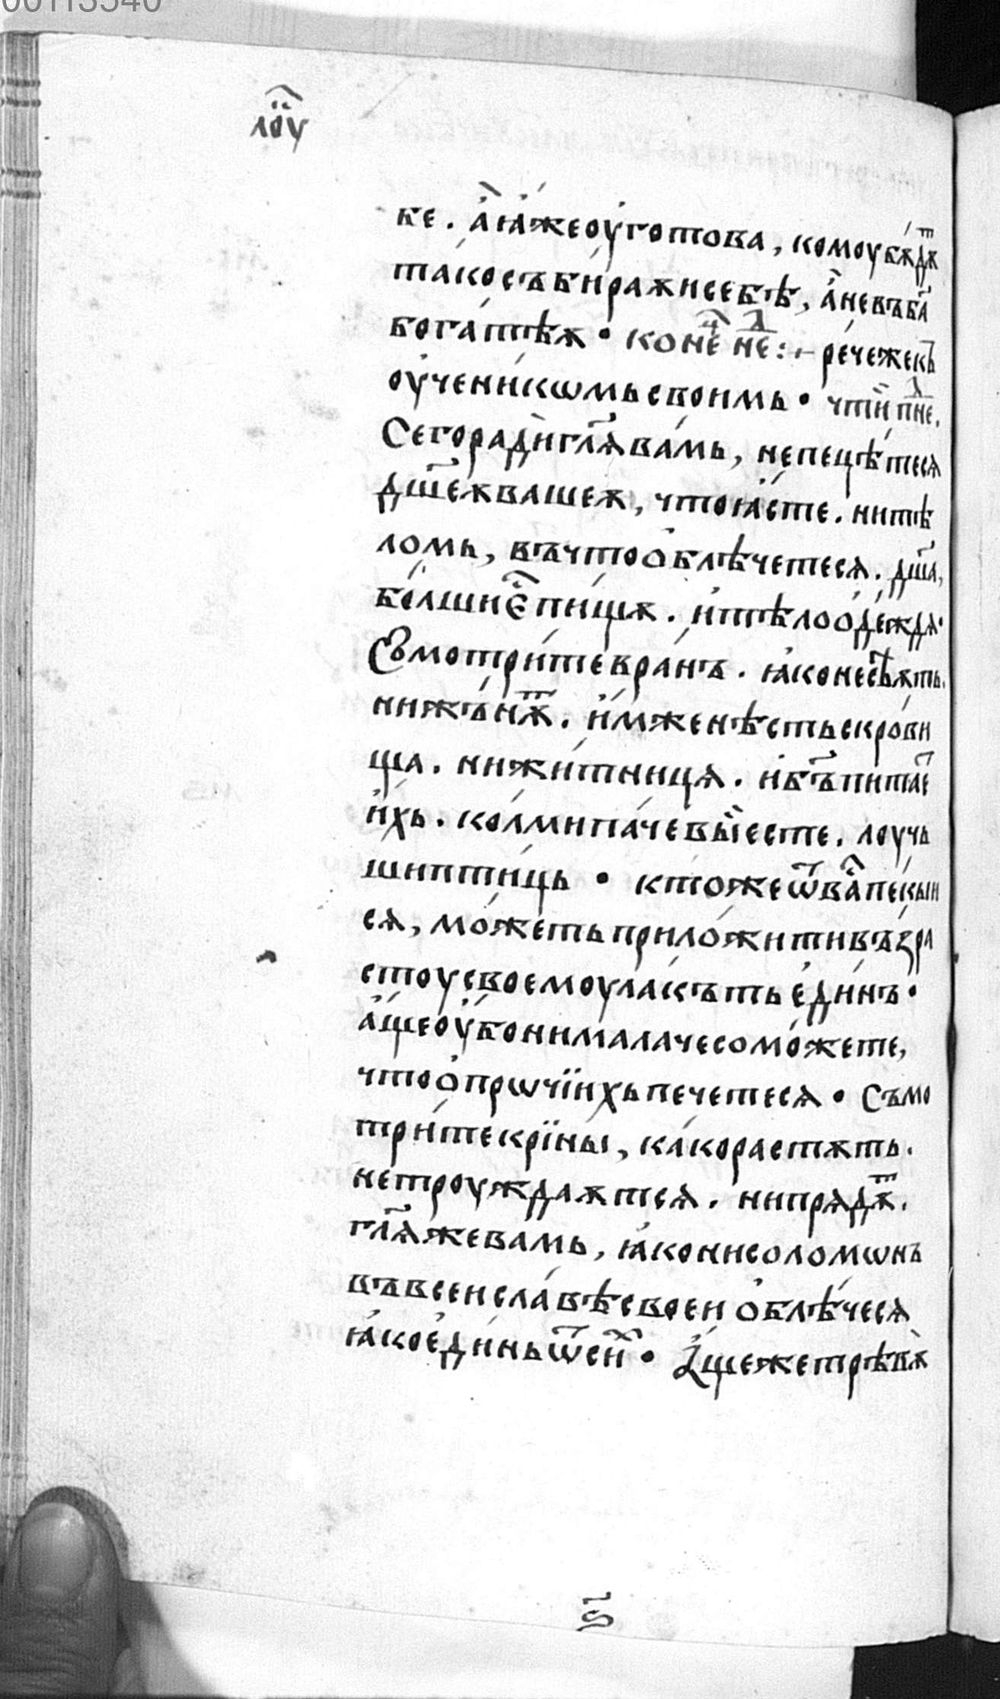 00113540
лоу҃
бе . а҆ ꙗ҆́же оу҆готова , комоу бѫдѫ́т
тако събираѫи себѣ , а҆ не въ ба҃
богатѣѫ • коне҃ не҃ :⁓ рече же къ
оу҆ченикѡмь своимь • чти пне҃ .
Сего ради гл҃ѧ вамь , не пецѣтесѧ
дш҃еѫ вашеѫ , что ꙗ҆сте . ни тѣ
ломь , въ что ѻ҆блѣчетесѧ . дш҃а ,
болши е҃ пищѫ . и҆ тѣло ѻ҆деждѧ •
Съмотрите вранъ . ꙗ҆ко не сѣѫть .
ни жънѫ́т . и҆мже нѣсть скрови
ща . ни житницѧ . и҆ бъ҃ питае҃
и҆хь . колми паче вы е҆сте . лоучь
ши птиць • кто же ѿ ва҃ пекыи
сѧ , можеть приложити възра
стоу своемоу лакъть е҆динъ •
а҆ще оу҆бо ни мала чесо можете ,
что ѻ҆ прѡчїихь печетесѧ • Съмо
трите крїны , како растѫть .
не троуждаѫтсѧ . ни прѧдѫ́т .
гл҃ѧ же вамь , ꙗ҆ко ни соломѡнъ
въ всеи славѣ своеи ѻ҆блѣчесѧ
ꙗ҆ко е҆динь ѿ сих • А҆ще же трѣвѫ
ѕ҃